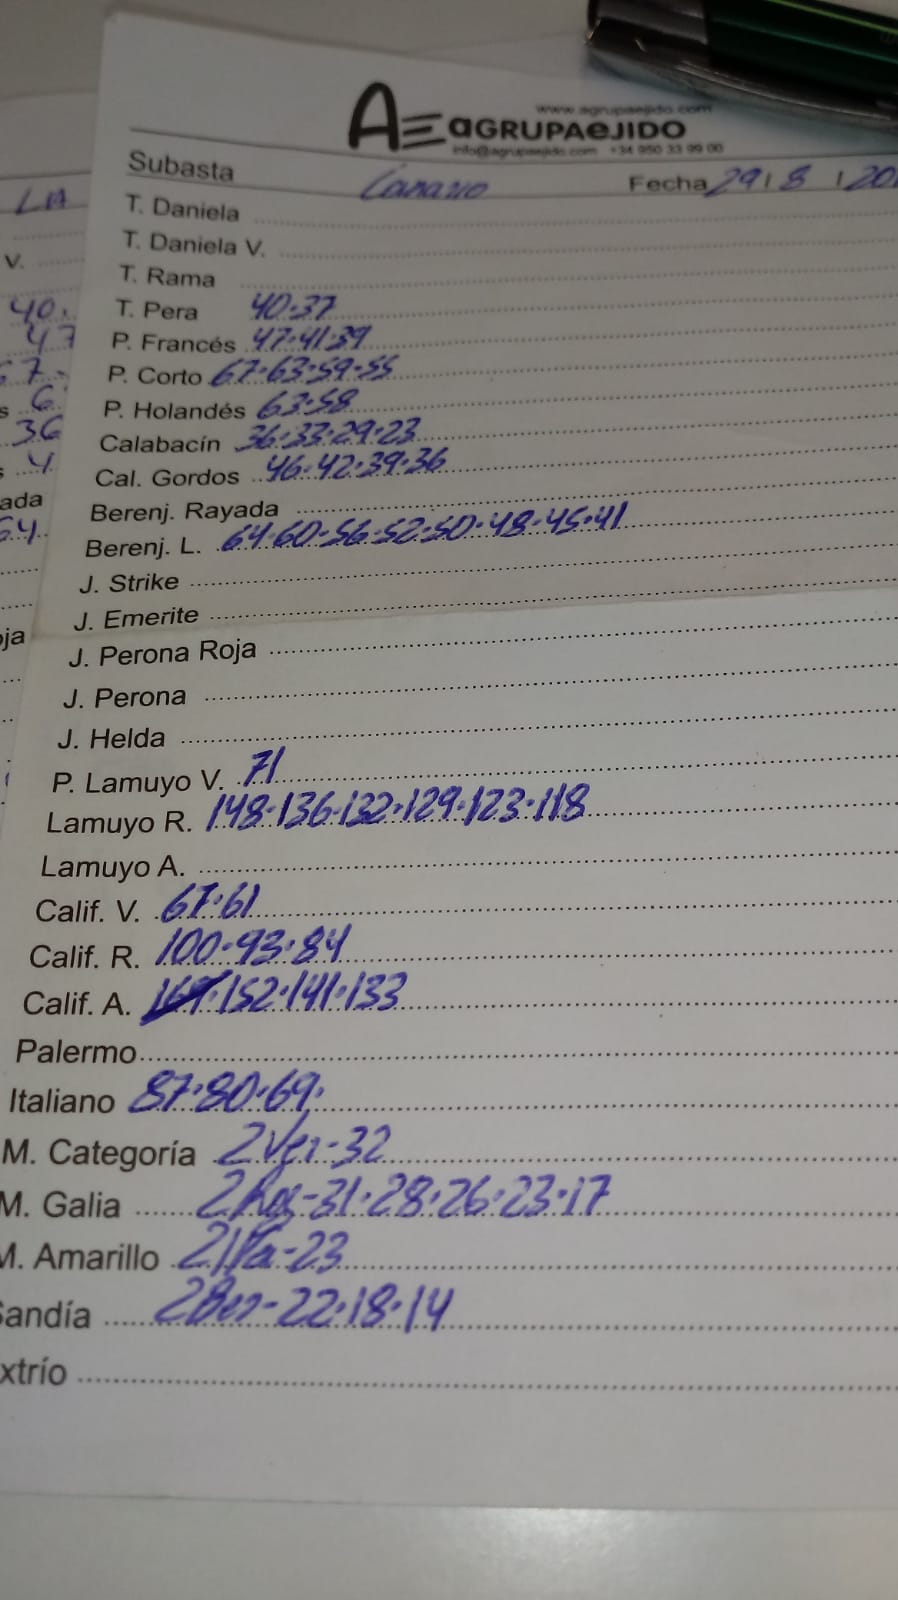 www.agrupaejido.com
AGRUPAEJIDO
info@agrupaejido.com +34 950 33 99 00
Subasta Canario Fecha 29/8/20
T. Daniela
T. Daniela V.
T. Rama
T. Pera 40·37
P. Francés 47·41·39
P. Corto 67·63·59·55
P. Holandés 63·58
Calabacín 36·33·29·23
Cal. Gordos 46·42·39·36
Berenj. Rayada
Berenj. L. 64·60·56·52·50·48·45·41
J. Strike
J. Emerite
J. Perona Roja
J. Perona
J. Helda
P. Lamuyo V. 71
Lamuyo R. 148·136·132·129·123·118
Lamuyo A.
Calif. V. 67·61
Calif. R. 100·93·84
Calif. A. 152·141·133
Palermo
Italiano 87·80·69·
M. Categoría 2Ver-32
M. Galia 31·28·26·23·17
M. Amarillo 23
Sandía 22·18·14
xtrío
LA
V.
40.
47
67.
s 6
36
s 4
ada
64.
oja